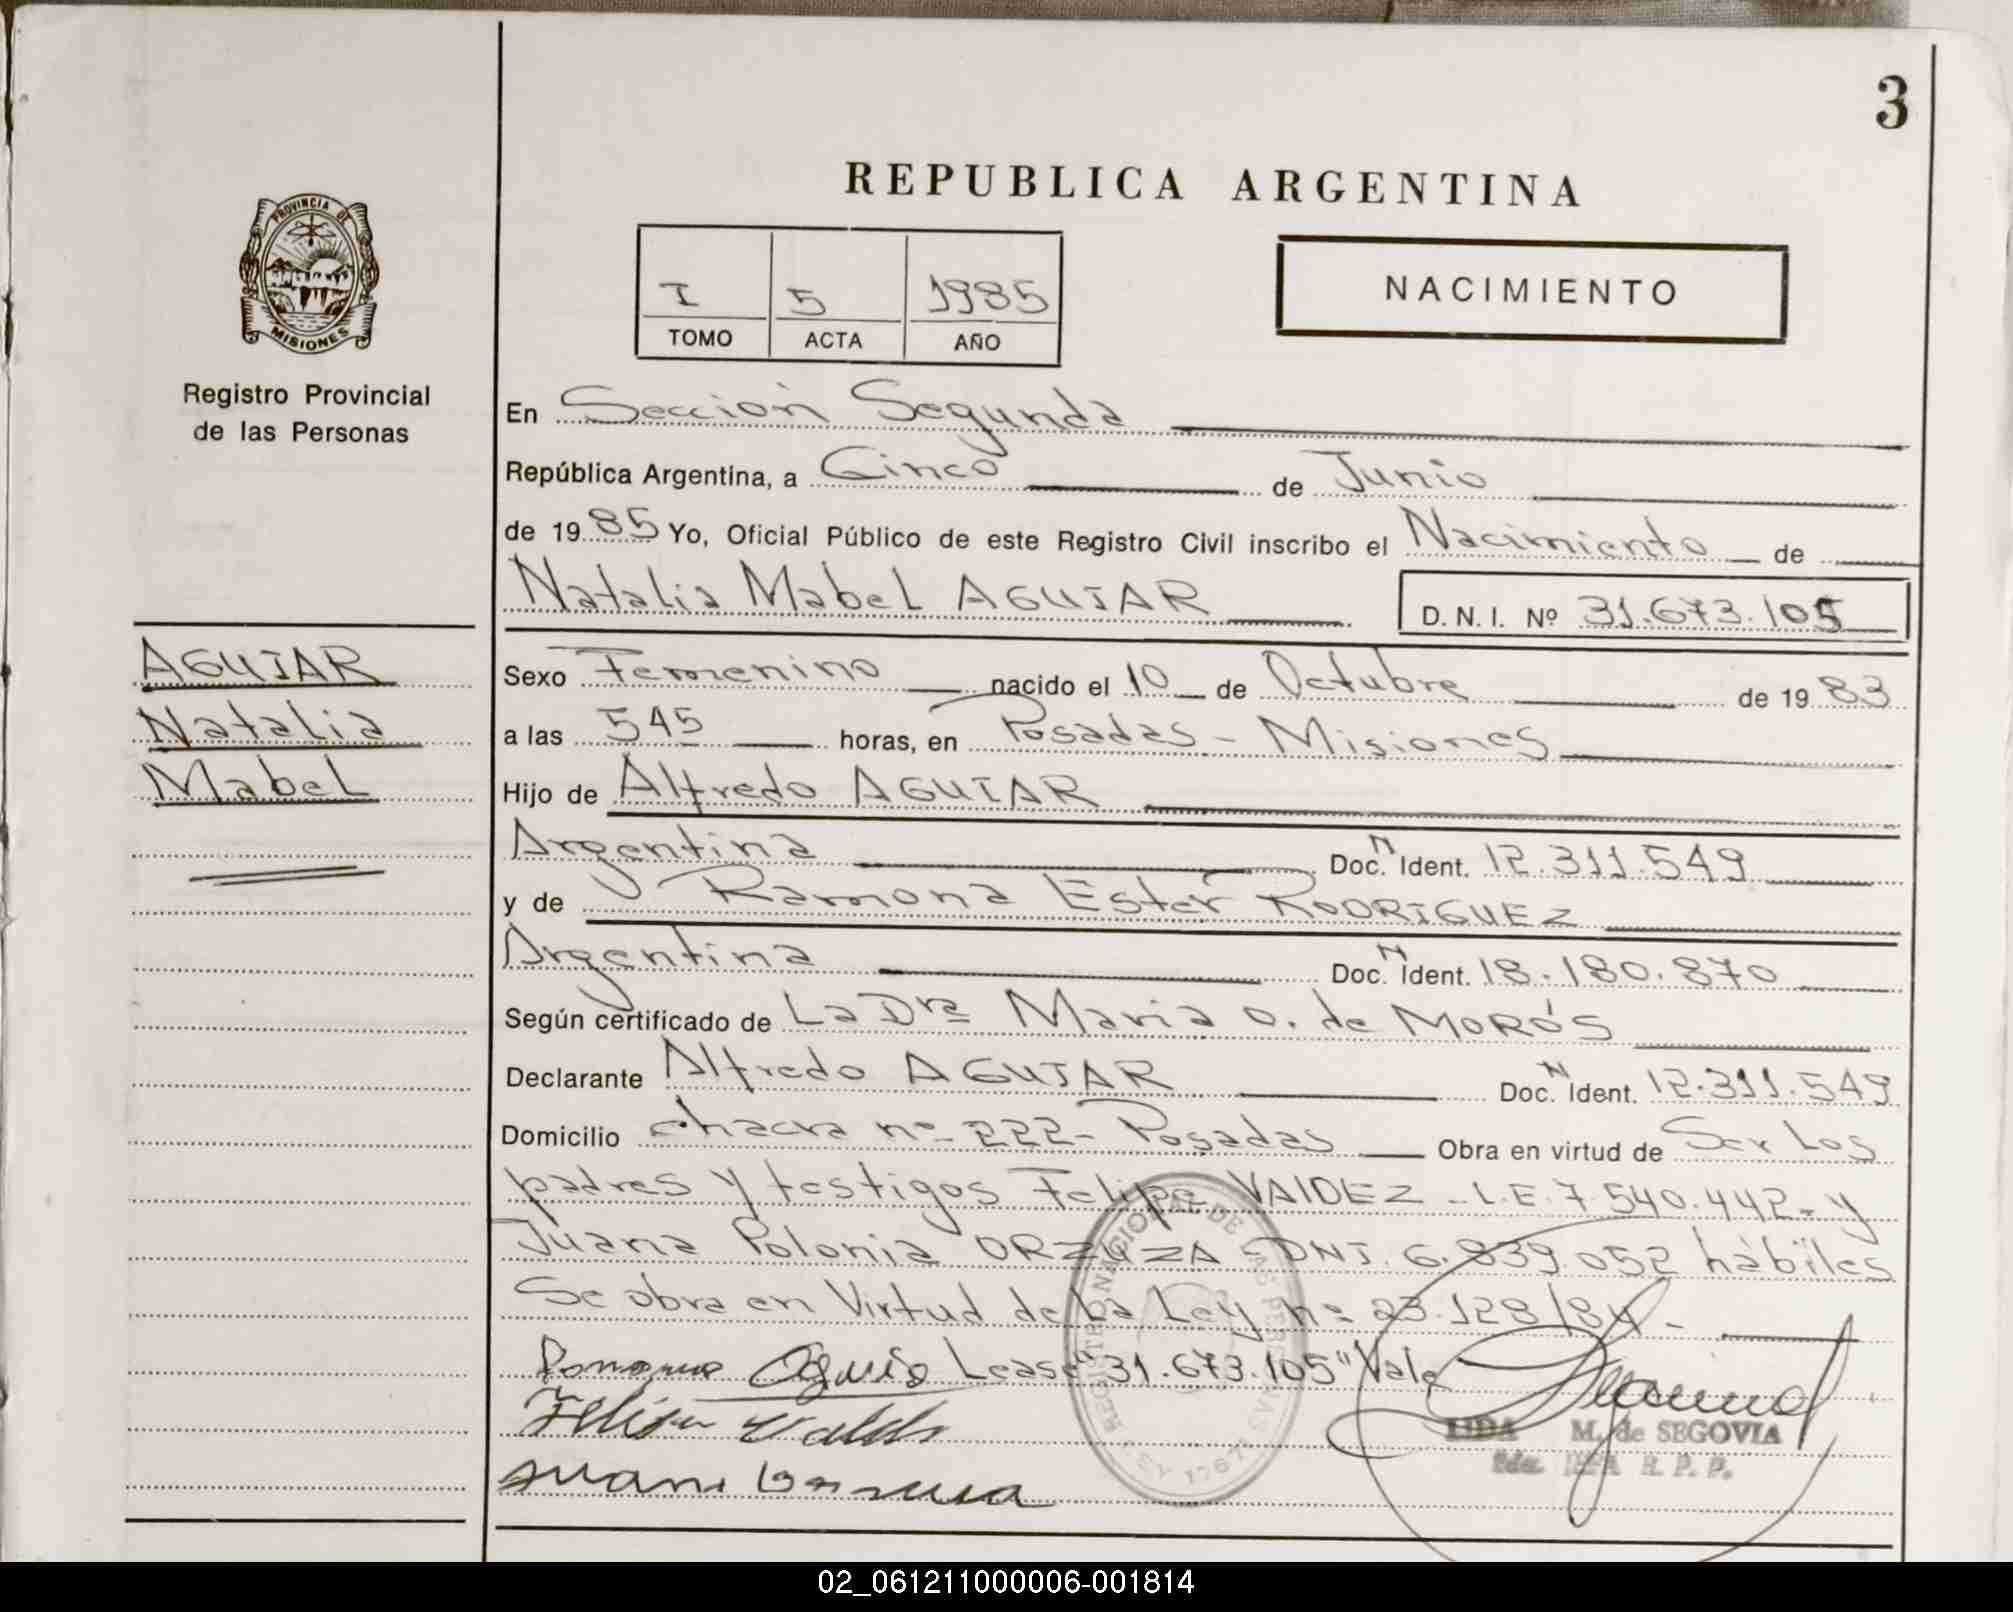 3
REPUBLICA ARGENTINA
PROVINCIA DE
MISIONES
Registro Provincial
de las Personas
I 5 1985
TOMO ACTA AÑO
NACIMIENTO
En Sección Segunda
República Argentina, a Cinco de Junio
de 1985 Yo, Oficial Público de este Registro Civil inscribo el Nacimiento de
Natalia Mabel AGUIAR D. N. I. Nº 31.673.105
AGUIAR
Natalia
Mabel
Sexo Femenino nacido el 10 de Octubre de 1983
a las 545 horas, en Posadas - Misiones
Hijo de Alfredo AGUIAR
Argentina Doc. N Ident. 12.311.549
y de Ramona Ester RODRIGUEZ
Argentina Doc. N Ident. 18.180.870
Según certificado de La Dra Maria O. de MORÓS
Declarante Alfredo AGUIAR Doc. N Ident. 12.311.549
Domicilio chacra nº 222 - Posadas Obra en virtud de Ser Los
padres y testigos Felipe VALDEZ - L.E. 7.540.442 - y
Juana Polonia - DNI. 6.839.052 hábiles
Se obra en Virtud de La Ley nº 23.128/84 -
Lease "31.673.105" Vale
LIDA M. de SEGOVIA
R. P. P.
REGISTRO NACIONAL DE LAS PERSONAS
02_061211000006-001814